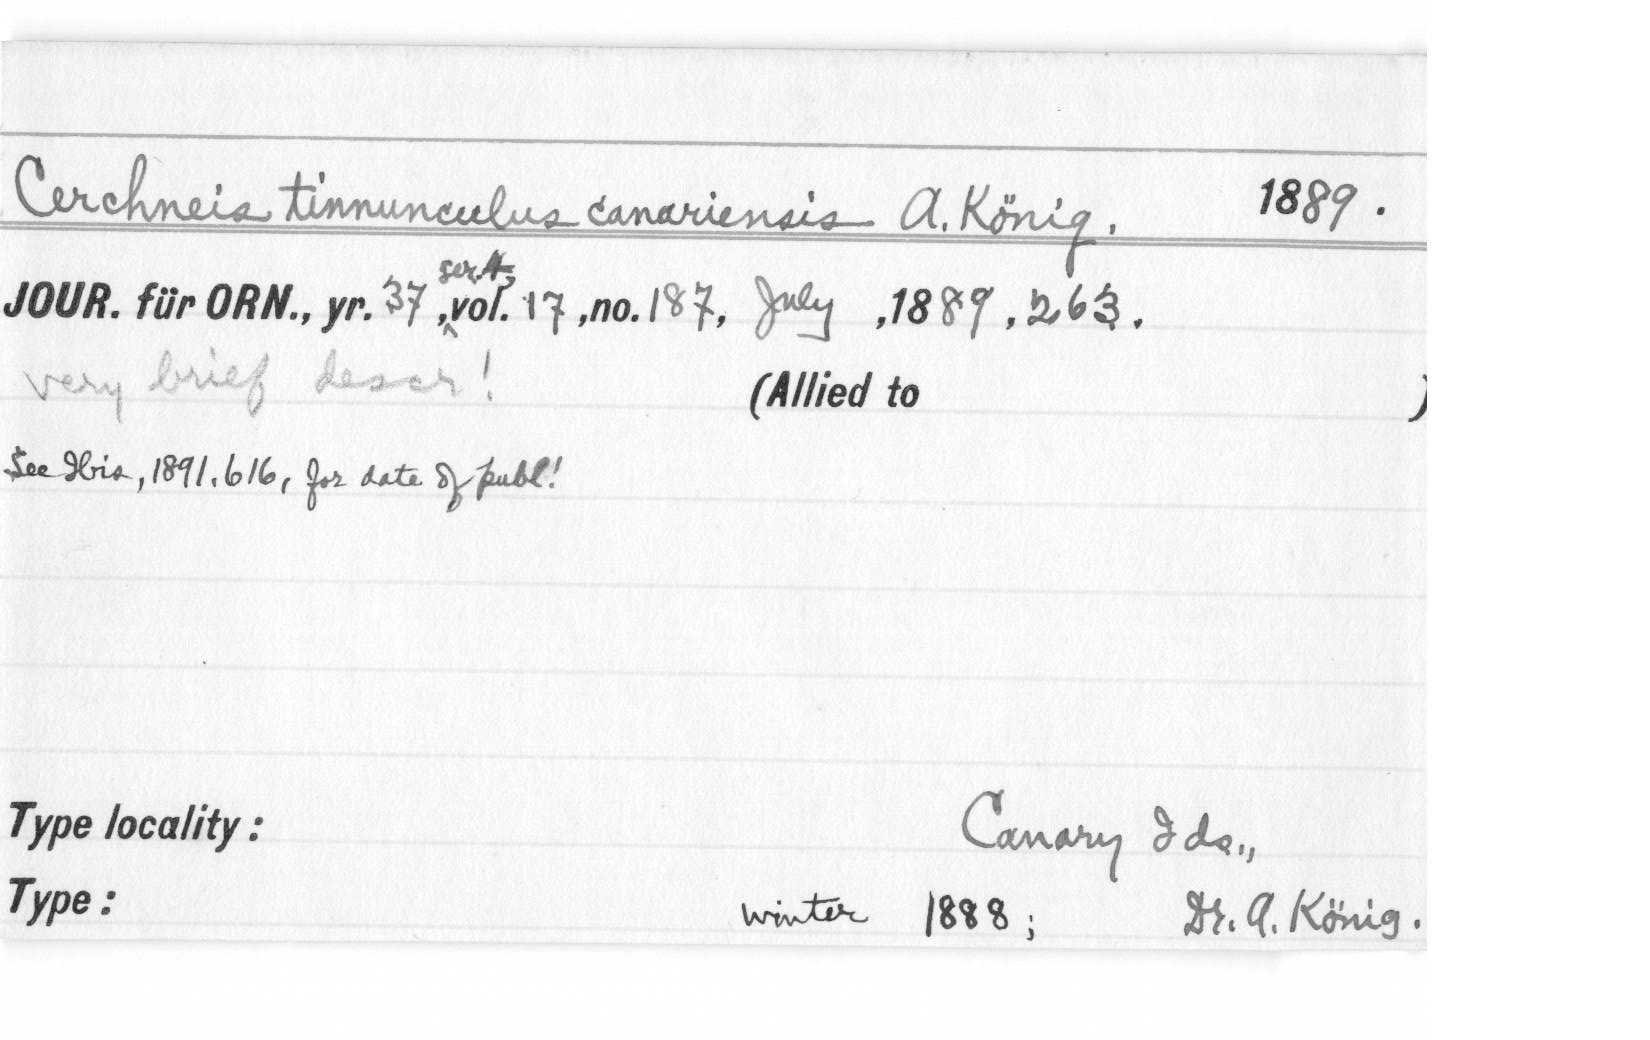 Cerchneis tinnunculus canariensis A. König. 1889.
ser. 4,
JOUR. für ORN., yr. 37, vol. 17, no. 187, July, 1889, 263.
very brief descr! (Allied to )
See Ibis, 1891. 616, for date of publ!
Type locality: Canary Ids.,
Type: winter 1888; Dr. A. König.